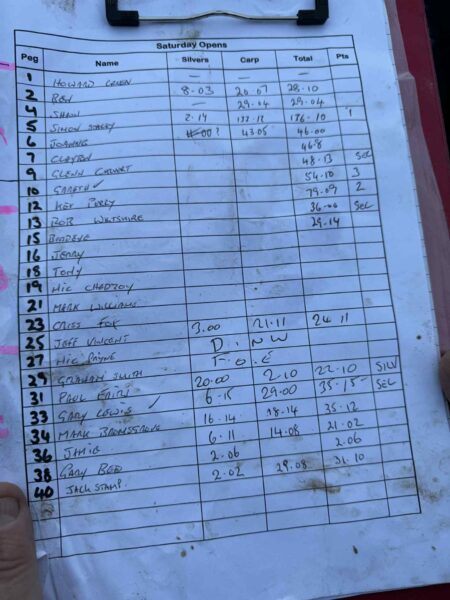 Saturday Opens
Peg Name Silvers Carp Total Pts
1 HOWARD — — —
2 BEN 8-03 20.07 28.10
4 SHAUN — 29.04 29.04
5 SIMON 2.14 136.10 1
6 JOANNE 43.05 46.00
7 CLAYTON 46.8
9 GLENN 48.13 SEC
10 GARETH ✓ 54.10 3
12 KEV PERRY 79.09 2
13 BOB WILTSHIRE 36-00 SEC
15 29.14
16 JENNY
18 TODY
19 MIC
21 MARK WILLIAMS
23 CRISS FOX 3.00 21.11 24 11
25 JEFF VINCENT D.N.W
27 MIC PAYNE F.O.E
29 GRAHAM SMITH 20.00 2.10 22.10 SILV
31 PAUL 6-15 29.00 35-15 SEC
33 GARY LEWIS ✓ 16-14 18.14 35.12
34 MARK BROMSGROVE 6.11 14.08 21.02
36 JAMIE 2.06 2.06
38 GARY BEE 2.02 29.08 31.10
40 JACK STAMP.